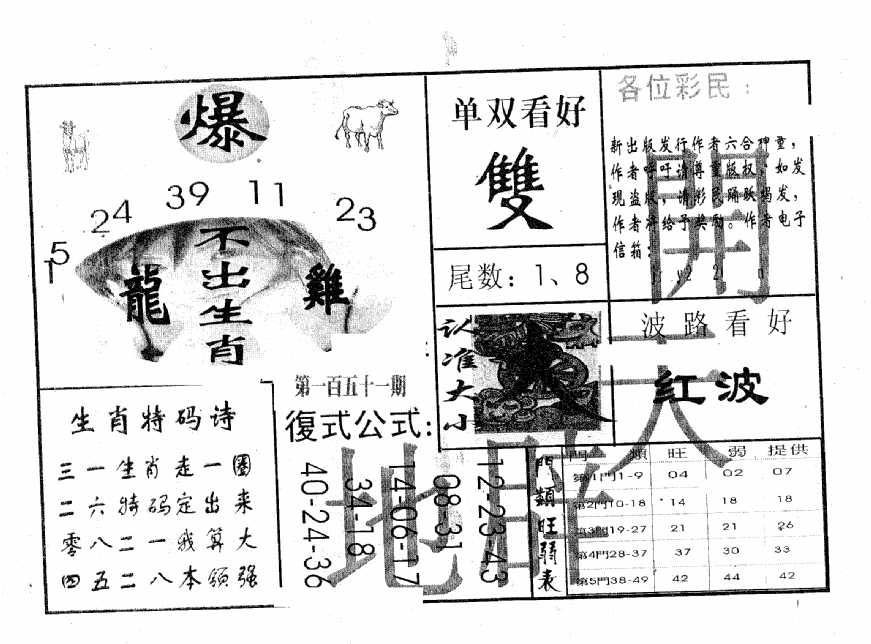 爆
15 24 39 11 23
不出生肖
龍
雞
单双看好
雙
尾数：1、8
各位彩民：
新出版发行作者六合神童，
作者呼吁请尊重版权，如发
现盗版，请彩民踊跃揭发，
作者并给予奖励。作者电子
信箱：
波路看好
红波
认准大小
大
第一百五十一期
復式公式：
12-23-43
08-31
14-06-17
34-18
40-24-36
生肖特码诗
三一生肖走一圈
二六特码定出来
零八二一我算大
四五二八本领强
門類旺弱表
門 類 旺 弱 提供
第1門1-9 04 02 07
第2門10-18 14 18 18
第3門19-27 21 21 26
第4門28-37 37 30 33
第5門38-49 42 44 42
開
天
闢
地